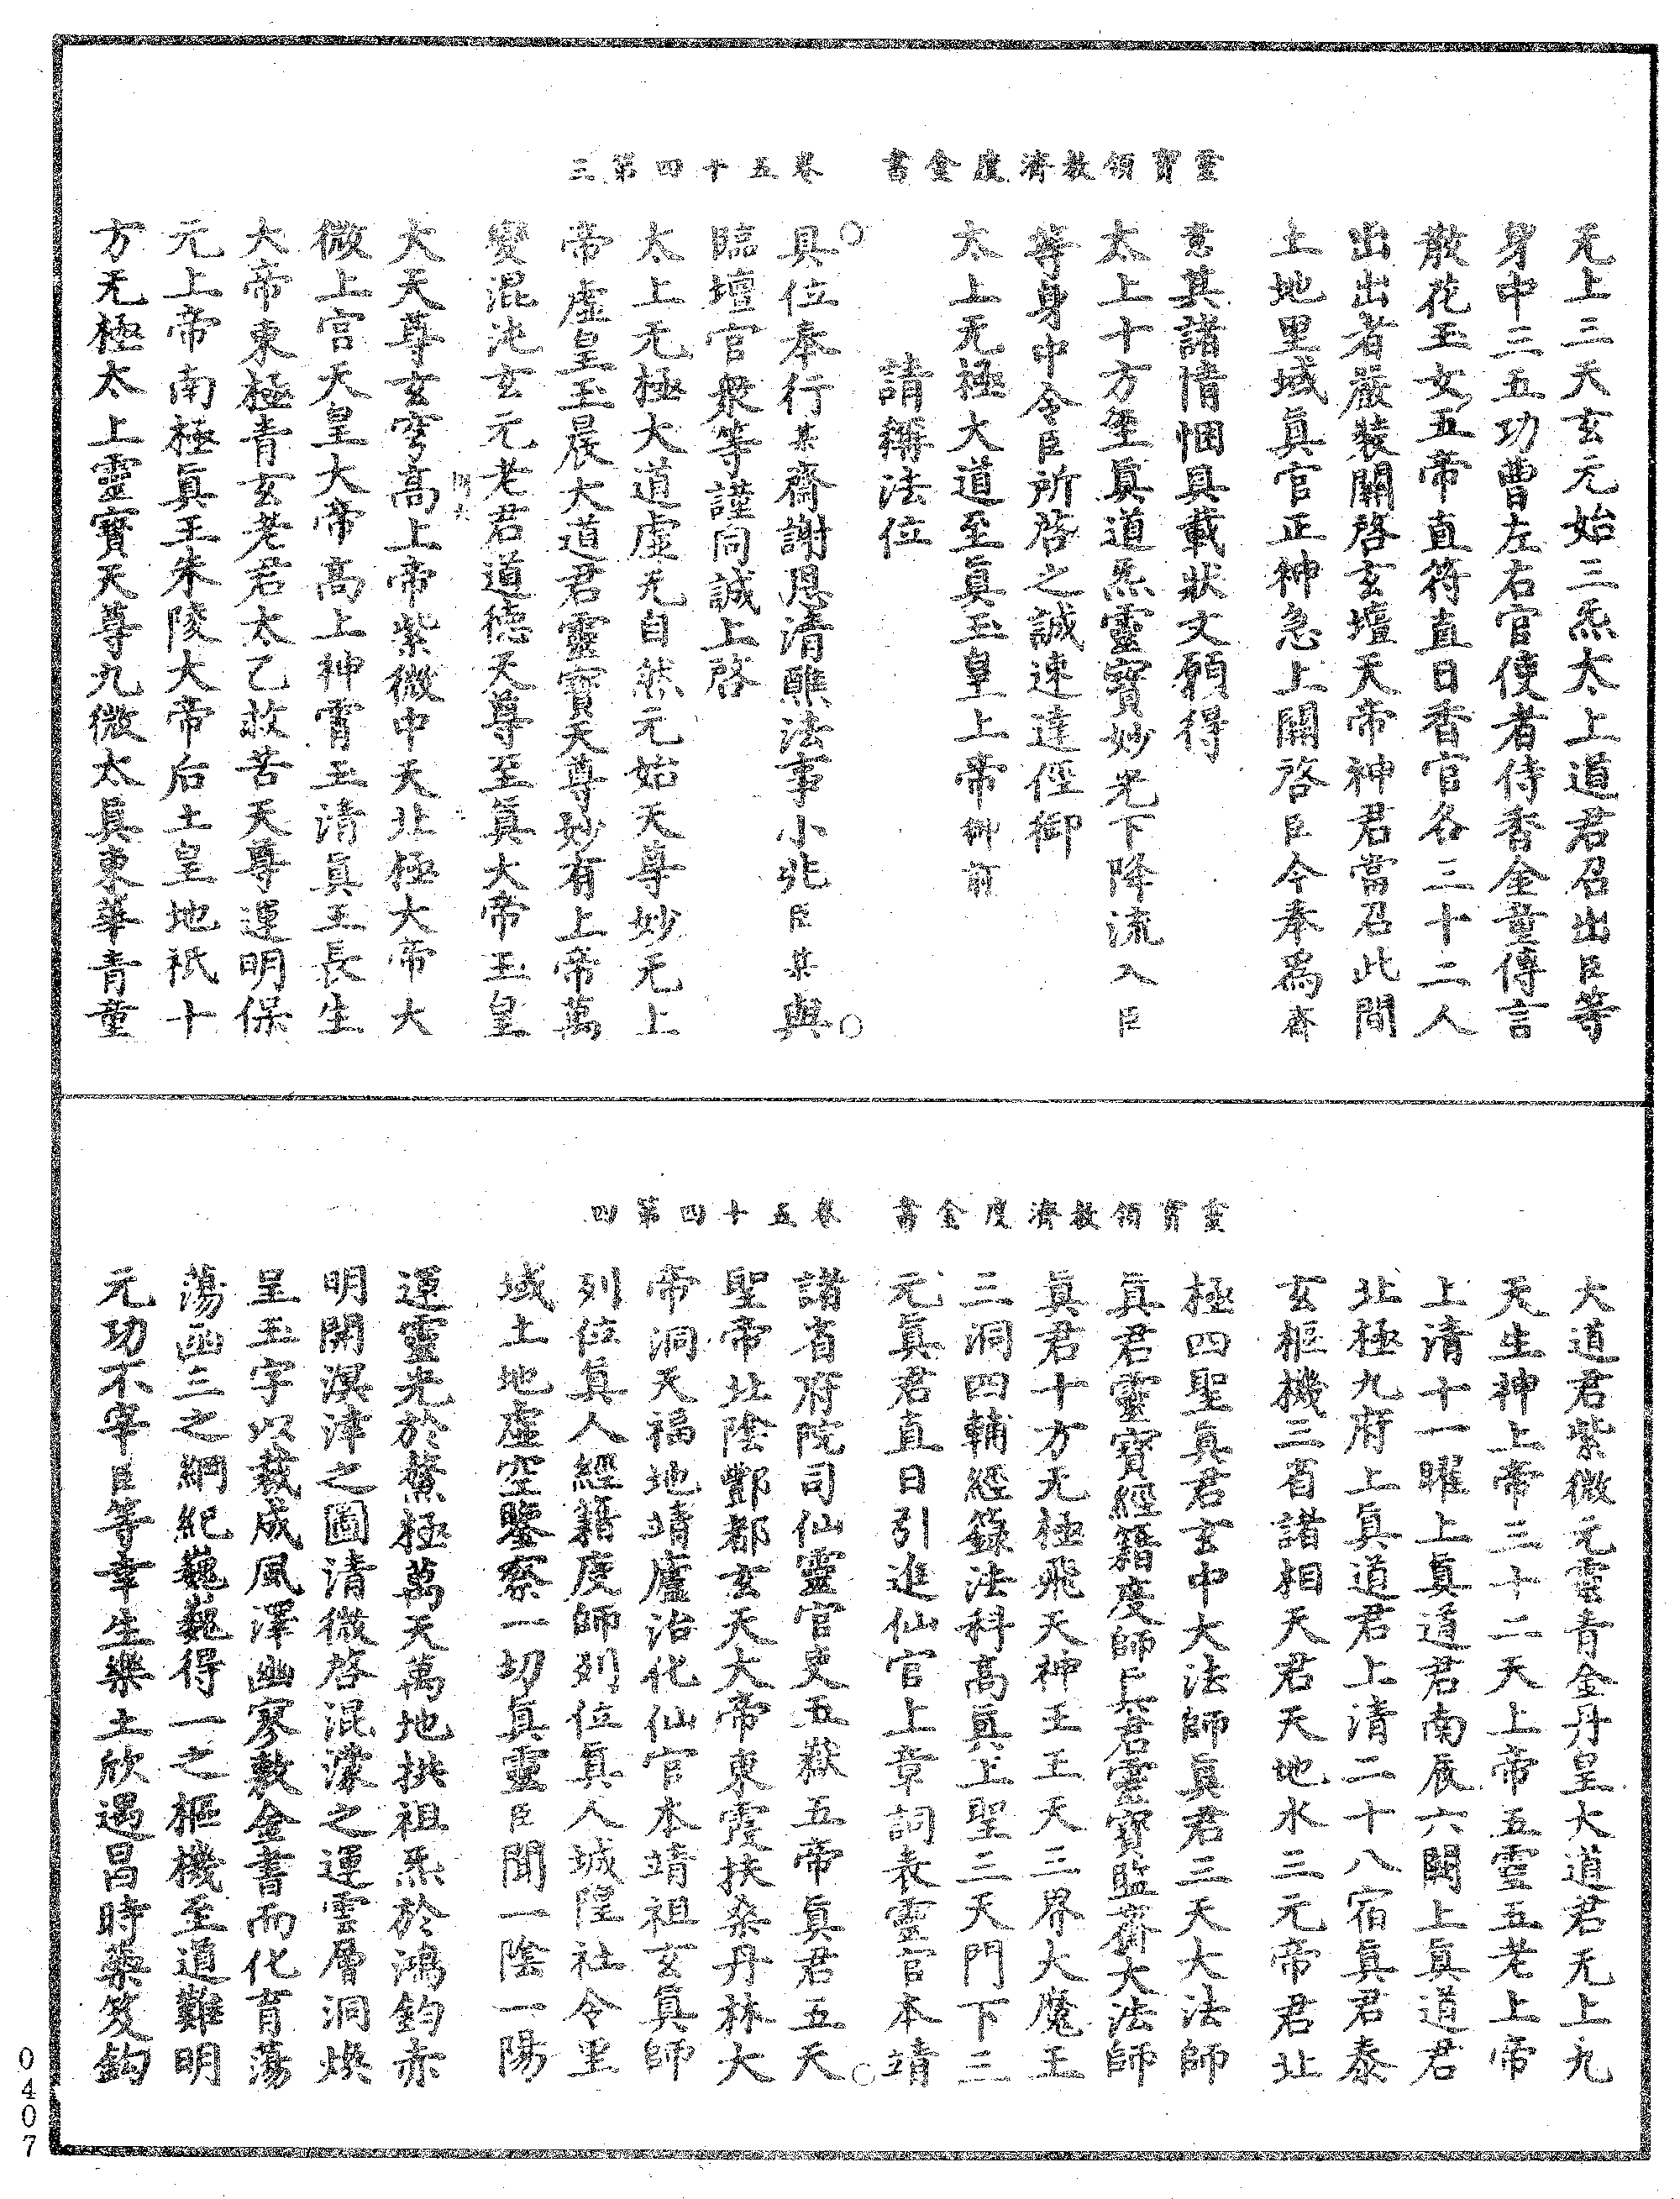 靈寶領教濟度金書　卷五十四第三
无上三天玄元始三炁太上道君召出臣等
身中三五功曹左右官使者侍香金童傳言
散花玉女五帝直符直日香官各三十二人
出出者嚴裝關啓玄壇天帝神君當召此間
土地里域眞官正神急上關啓臣今奉爲齋
意其諸情悃具載狀文願得
太上十方至眞道炁靈寶妙光下降流入臣
等身中令臣所啓之誠速達徑御
太上无極大道至眞玉皇上帝御前
請稱法位
具位奉行某齋謝恩清醮法事小兆臣某與
臨壇官衆等謹同誠上啓
太上无極大道虛无自然元始天尊妙无上
帝虛皇玉晨大道君靈寶天尊妙有上帝萬
變混沌玄元老君道德天尊至眞大帝玉皇
大天尊玄穹高上帝紫微中天北極大帝大
微上宮天皇大帝高上神霄玉清眞王長生
大帝東極青玄老君太乙救苦天尊運明保
元上帝南極眞王朱陵大帝后土皇地祇十
方无極太上靈寶天尊九微太眞東華青童
靈寶領教濟度金書　卷五十四第四
大道君紫微元靈青金丹皇大道君无上九
天生神上帝三十二天上帝五靈五老上帝
上清十一曜上眞道君南辰六闕上眞道君
北極九府上眞道君上清二十八宿眞君泰
玄樞機三省諸相天君天地水三元帝君北
極四聖眞君玄中大法師眞君三天大法師
眞君靈寶經籍度師上眞君靈寶監齋大法師
眞君十方无極飛天神王王天三界大魔王
三洞四輔經籙法科高眞上聖三天門下三
元眞君直日引進仙官上章詞表靈官本靖
諸省府院司仙靈官吏五嶽五帝眞君五天
聖帝北陰酆都玄天大帝東霞扶桑丹林大
帝洞天福地靖廬治化仙官本靖祖玄眞師
列位眞人經籍度師列位眞人城隍社令里
域土地虛空鑒察一切眞靈臣聞一陰一陽
運靈光於鰲極萬天萬地拱祖炁於鴻鈞赤
明開溟涬之圖清微啓混濛之運雲層洞煥
呈玉字以裁成風澤幽寥敷金書而化育蕩
蕩函三之綱紀巍巍得一之樞機至道難明
元功不宰臣等幸生樂土欣遇昌時藥笈鈞
0407